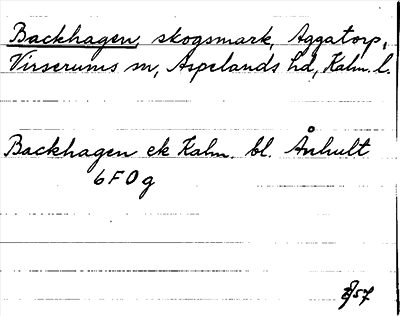 Backhagen, skogsmark, Aggatorp,
Virserums sn, Aspelands hd, Kalm. l.
Backhagen ek Kalm. bl. Ånhult
6F0g
57